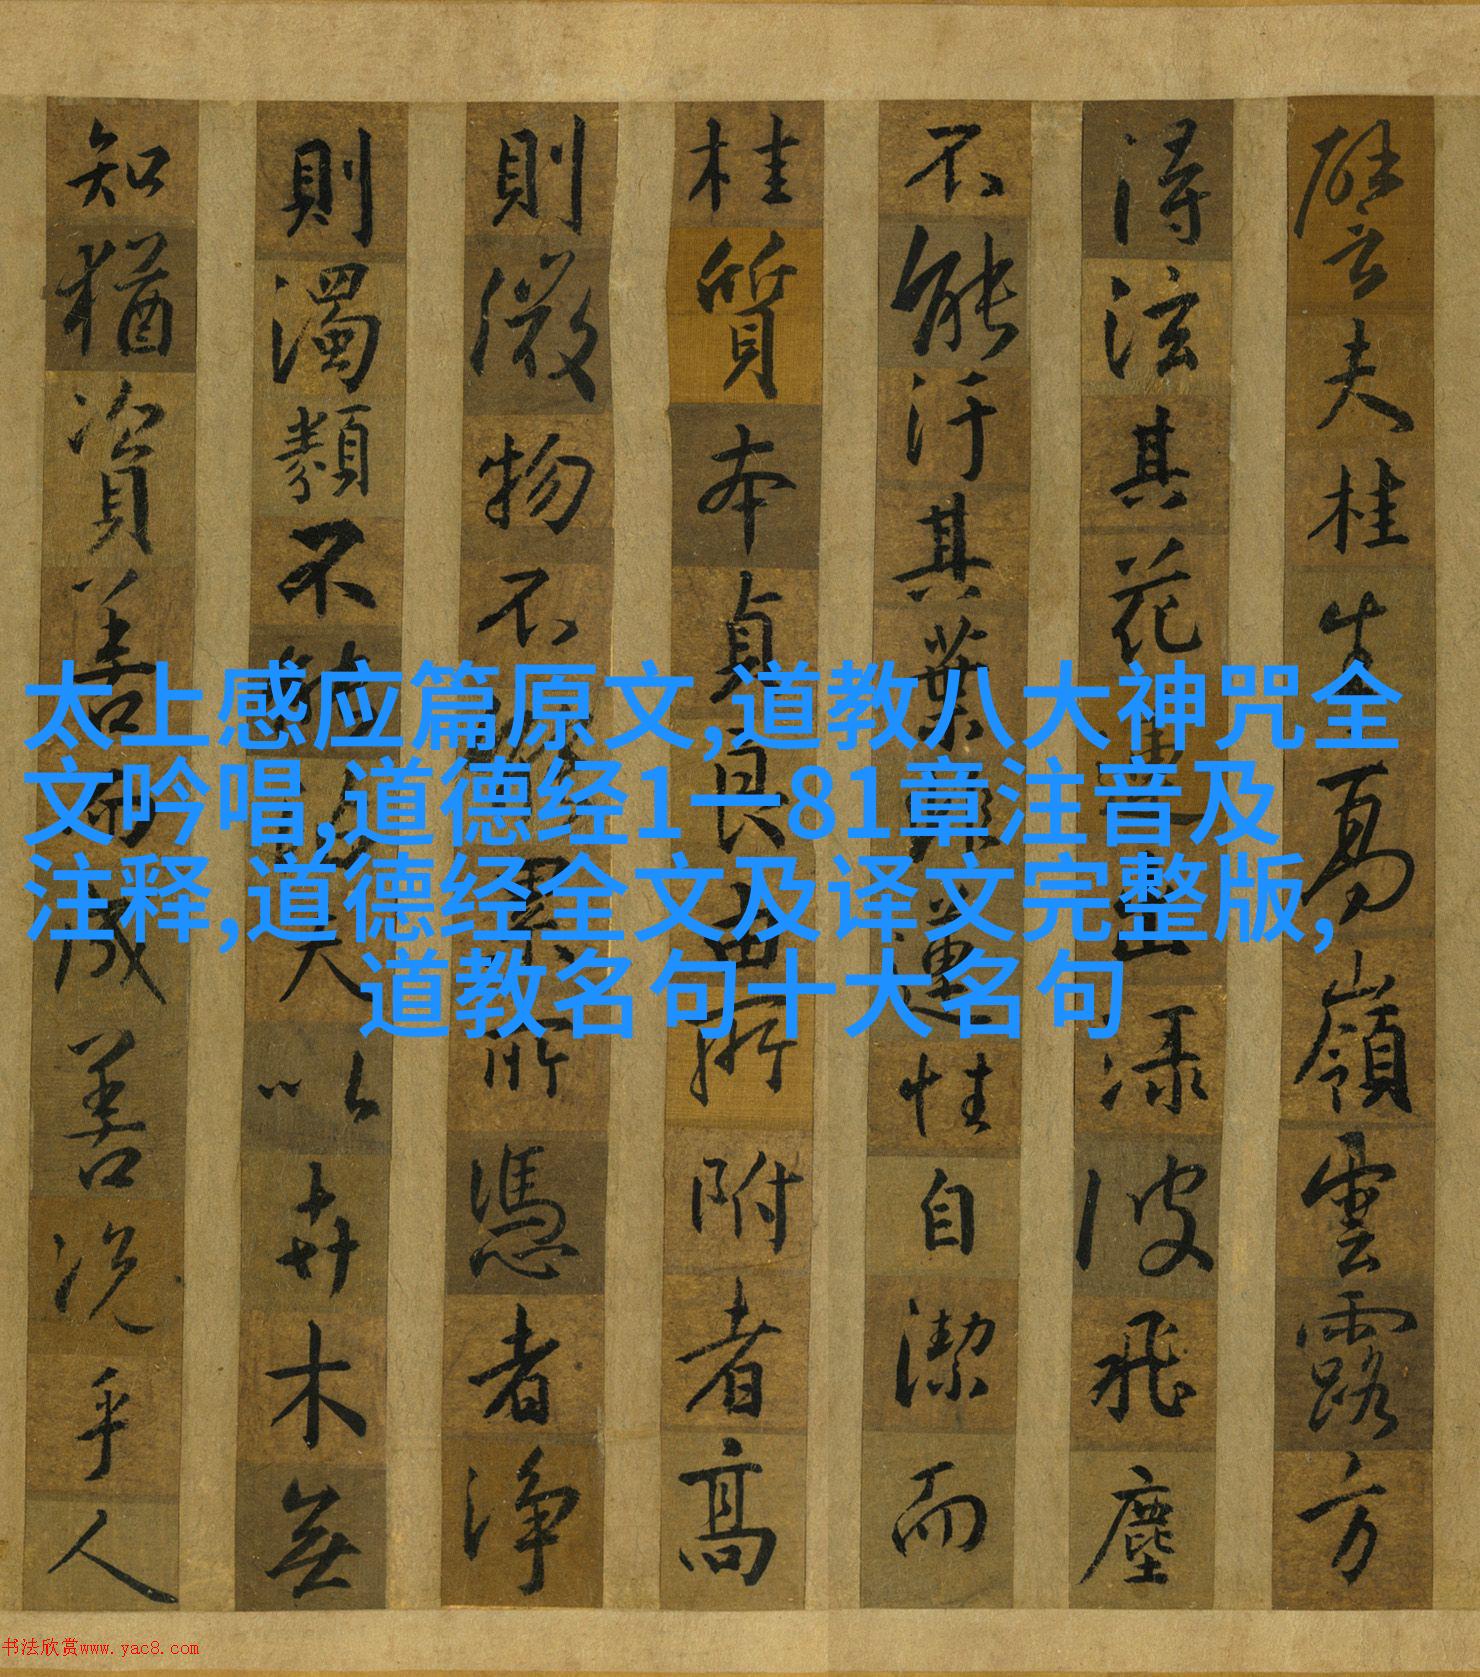 譬夫桂生高嶺雲露方
得泫其花蓮出淥波飛塵
不能汙其葉非蓮性自潔而
桂質本貞良由所附者高
則微物不能累所憑者淨
則濁類不能沾夫以卉木無
知猶資善而成善況乎人
太上感应篇原文,道教八大神咒全
文吟唱,道德经1一81章注音及
注释,道德经全文及译文完整版,
道教名句十大名句
书法欣赏www.yac8.com